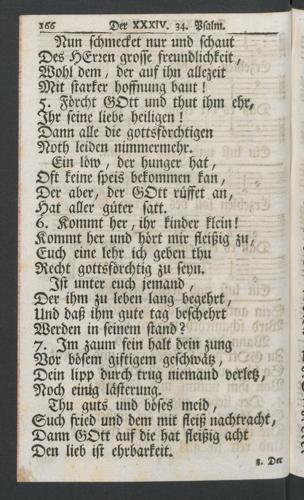 166 Der XXXIV. 34. Psalm.
Nun schmecket nur und schaut
Des HErren grosse freundlichkeit,
Wohl dem, der auf ihn allezeit
Mit starker hoffnung baut!
5. Förcht GOtt und thut ihm ehr,
Ihr seine liebe heiligen!
Dann alle die gottsförchtigen
Noth leiden nimmermehr.
Ein löw, der hunger hat,
Oft keine speis bekommen kan,
Der aber, der GOtt rüffet an,
Hat aller güter satt.
6. Kommt her, ihr kinder klein!
Kommt her und hört mir fleißig zu,
Euch eine lehr ich geben thu
Recht gottsförchtig zu seyn.
Ist unter euch jemand,
Der ihm zu leben lang begehrt,
Und daß ihm gute tag beschehrt
Werden in seinem stand?
7. Im zaum fein halt dein zung
Vor bösem giftigem geschwätz,
Dein lipp durch trug niemand verletz,
Noch einig lästerung.
Thu guts und böses meid,
Such fried und dem mit fleiß nachtracht,
Dann GOtt auf die hat fleißig acht
Den lieb ist ehrbarkeit.
8. Der